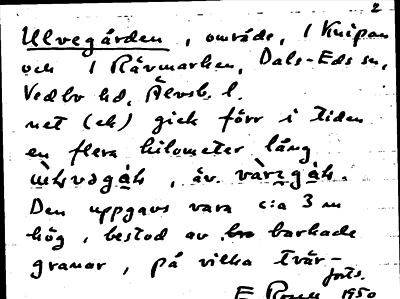 2
Ulvegården, område, i Knipan
och i Rävmarken, Dals-Eds sn,
Vedbo hd, Älvsb. l.
net (ck) gick förr i tiden
en flera kilometer lång
, äv.
Den uppgavs vara c:a 3 m
hög, bestod av bro barkade
granar, på vilka tvär-
forts.
E 1950